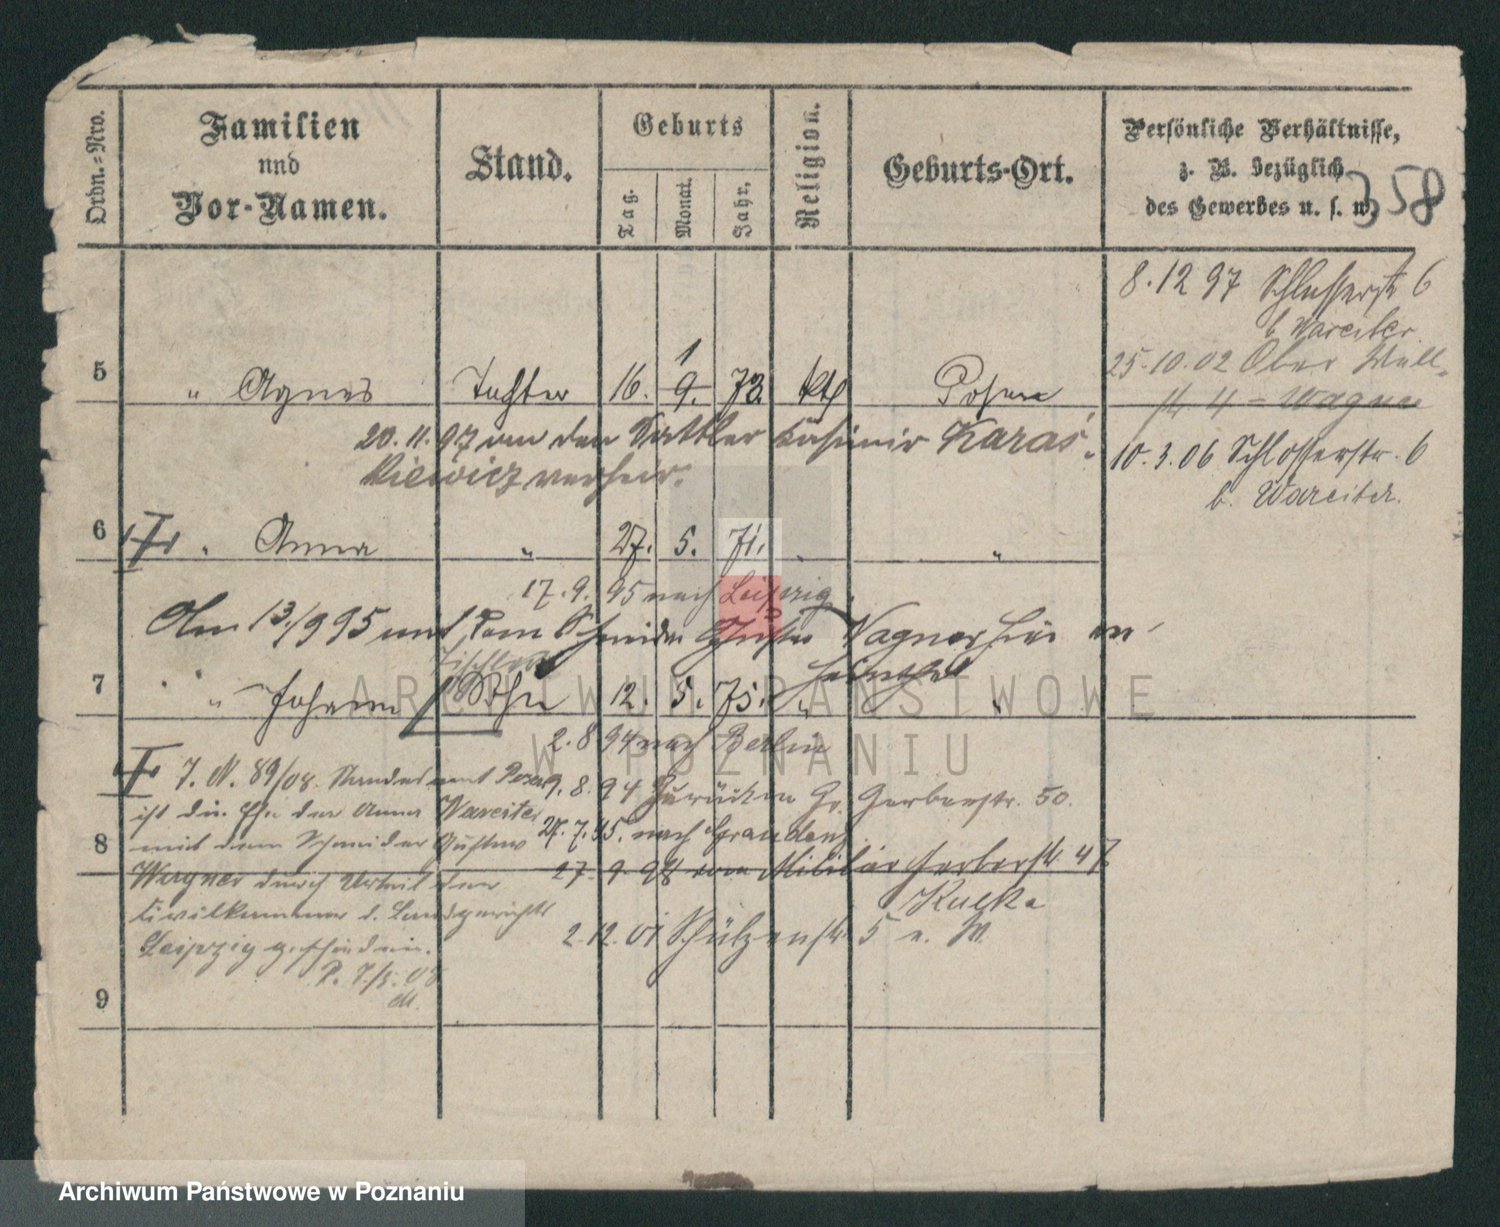 Ordn.=Nro.
Familien
und
Vor-Namen.
Stand.
Geburts
Tag.
Monat.
Jahr.
Religion.
Geburts-Ort.
Persönliche Verhältnisse,
z. B. bezüglich
des Gewerbes u. s. w.
358
8.12 97 Schlosserstr 6
b. Wareiter
25.10.02 Ober Wall-
str. 4 - Wagner
10.3.06 Schlosserstr. 6
b. Wareiter.
1
5 " Agnes Tochter 16. 9. 73. kth Posen
20.11.97 an den Sattler Kasimir Karas
kiewicz verheir.
6 " Anna " 27. 5. 71. " "
17.9.95 nach Leipzig
Am 13./9 95 mit dem Schneider Gustav Wagner hier
Tischler
7 " Johann Sohn 12. 5. 75. " "
2.8 94 nach Berlin
7. N. 89/08. Standesamt Posen
9.8.94 Zurück Gr. Gerberstr. 50.
ist die Ehe der Anna Wareiter
27.7.95. nach Graudenz
8 mit dem Schneider Gustav
27.9.98 vom Militär Gerberstr 47
Wagner durch Urteil der
Kucka
Civilkammer d. Landgerichts
2.12.01 Schützenstr 5 e. W.
Leipzig geschieden.
P. 7/5. 08
9
ARCHIWUM PAŃSTWOWE
W POZNANIU
Archiwum Państwowe w Poznaniu